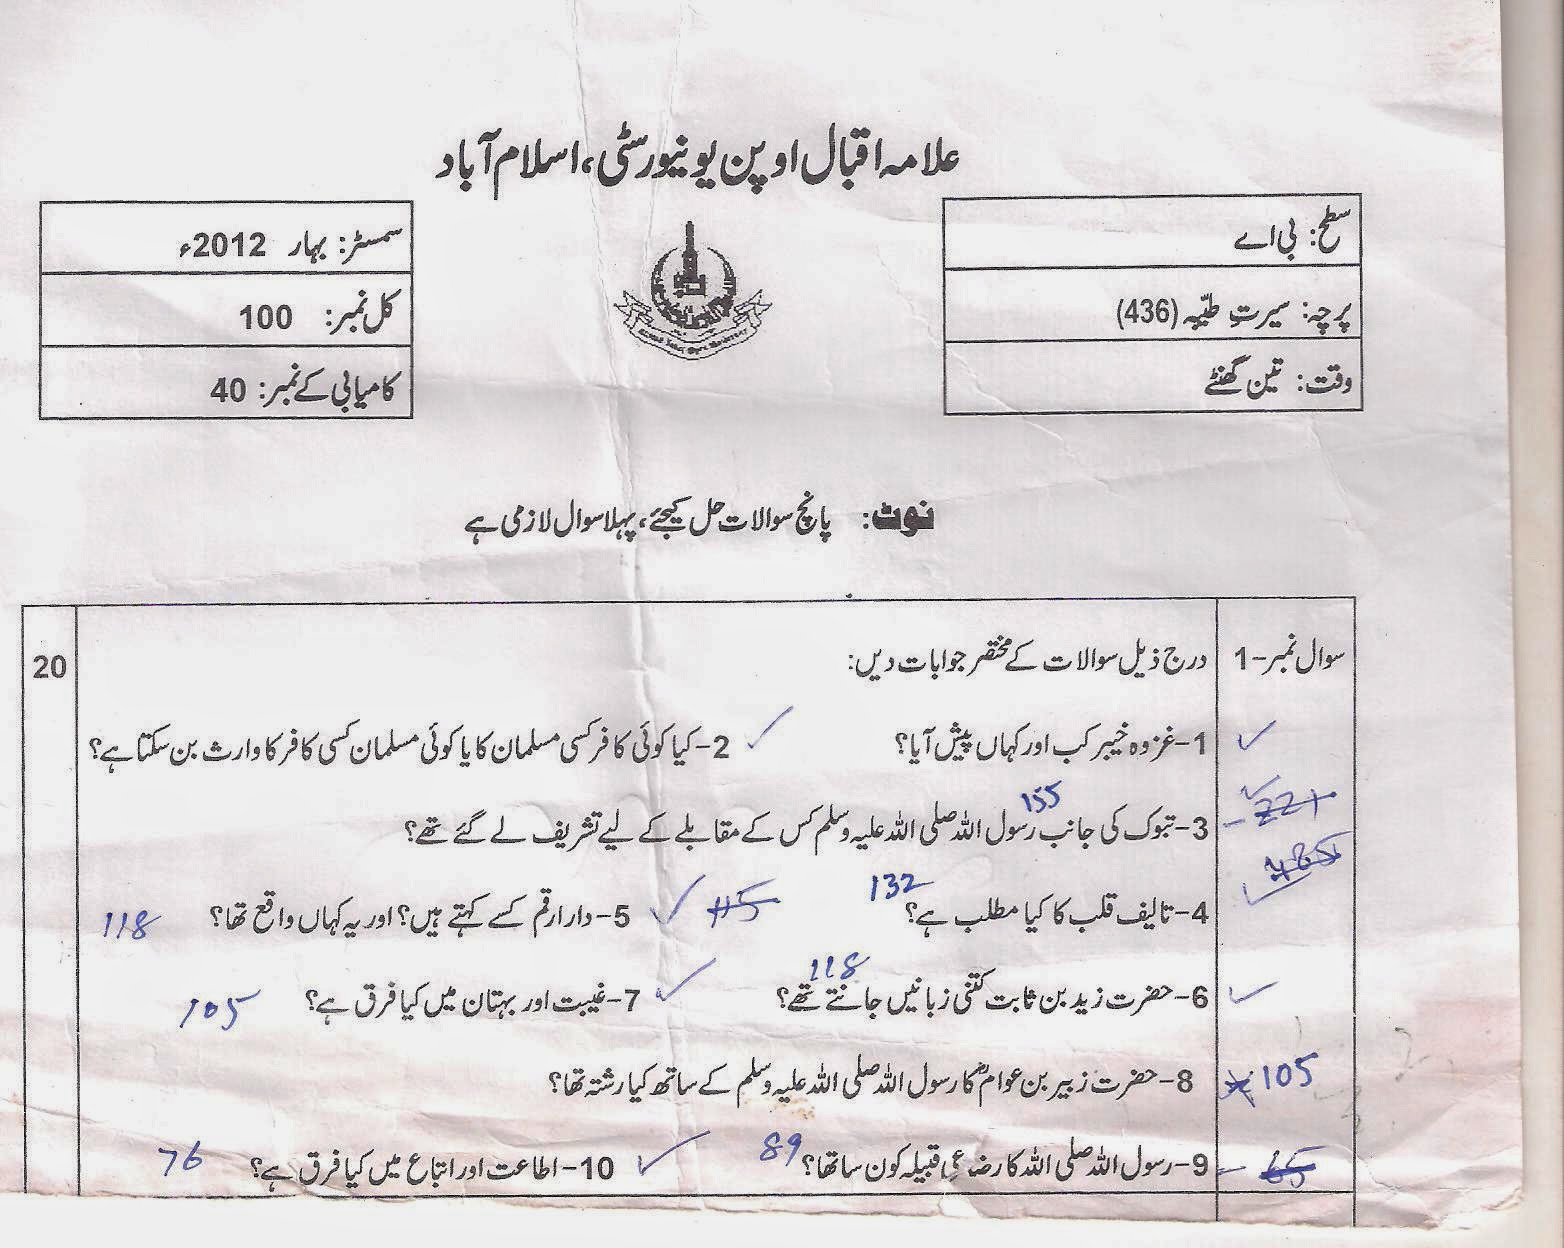 علامہ اقبال اوپن یونیورسٹی، اسلام آباد
سطح: بی اے
پرچہ: سیرتِ طیّبہ (436)
وقت: تین گھنٹے
سمسٹر: بہار 2012ء
کل نمبر: 100
کامیابی کے نمبر: 40
نوٹ: پانچ سوالات حل کیجئے، پہلا سوال لازمی ہے
سوال نمبر-1 درج ذیل سوالات کے مختصر جوابات دیں: 20
1-غزوہ خیبر کب اور کہاں پیش آیا؟ 2-کیا کوئی کافر کسی مسلمان کا یا کوئی مسلمان کسی کافر کا وارث بن سکتا ہے؟
155
221 3-تبوک کی جانب رسول اللہ صلی اللہ علیہ وسلم کس کے مقابلے کے لیے تشریف لے گئے تھے؟
132
4-تالیف قلب کا کیا مطلب ہے؟ 115 5-دار ارقم کسے کہتے ہیں؟ اور یہ کہاں واقع تھا؟ 118
118
6-حضرت زید بن ثابت کتنی زبانیں جانتے تھے؟ 7-غیبت اور بہتان میں کیا فرق ہے؟ 105
105 8-حضرت زبیر بن عوامؓ کا رسول اللہ صلی اللہ علیہ وسلم کے ساتھ کیا رشتہ تھا؟
65 9-رسول اللہ صلی اللہ کا رضاعی قبیلہ کون سا تھا؟ 89 10-اطاعت اور اتباع میں کیا فرق ہے؟ 76